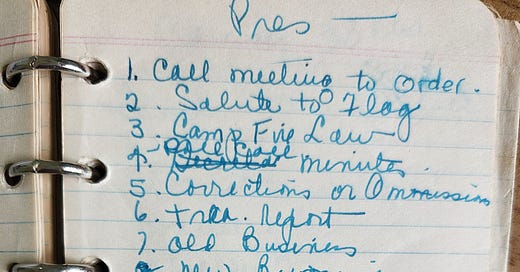 Pres —
1. Call meeting to order.
2. Salute to Flag
3. Camp Fire Law
4. Roll Call minutes.
5. Corrections or Ommission
6. trea. Report
7. old Business
8 new Business